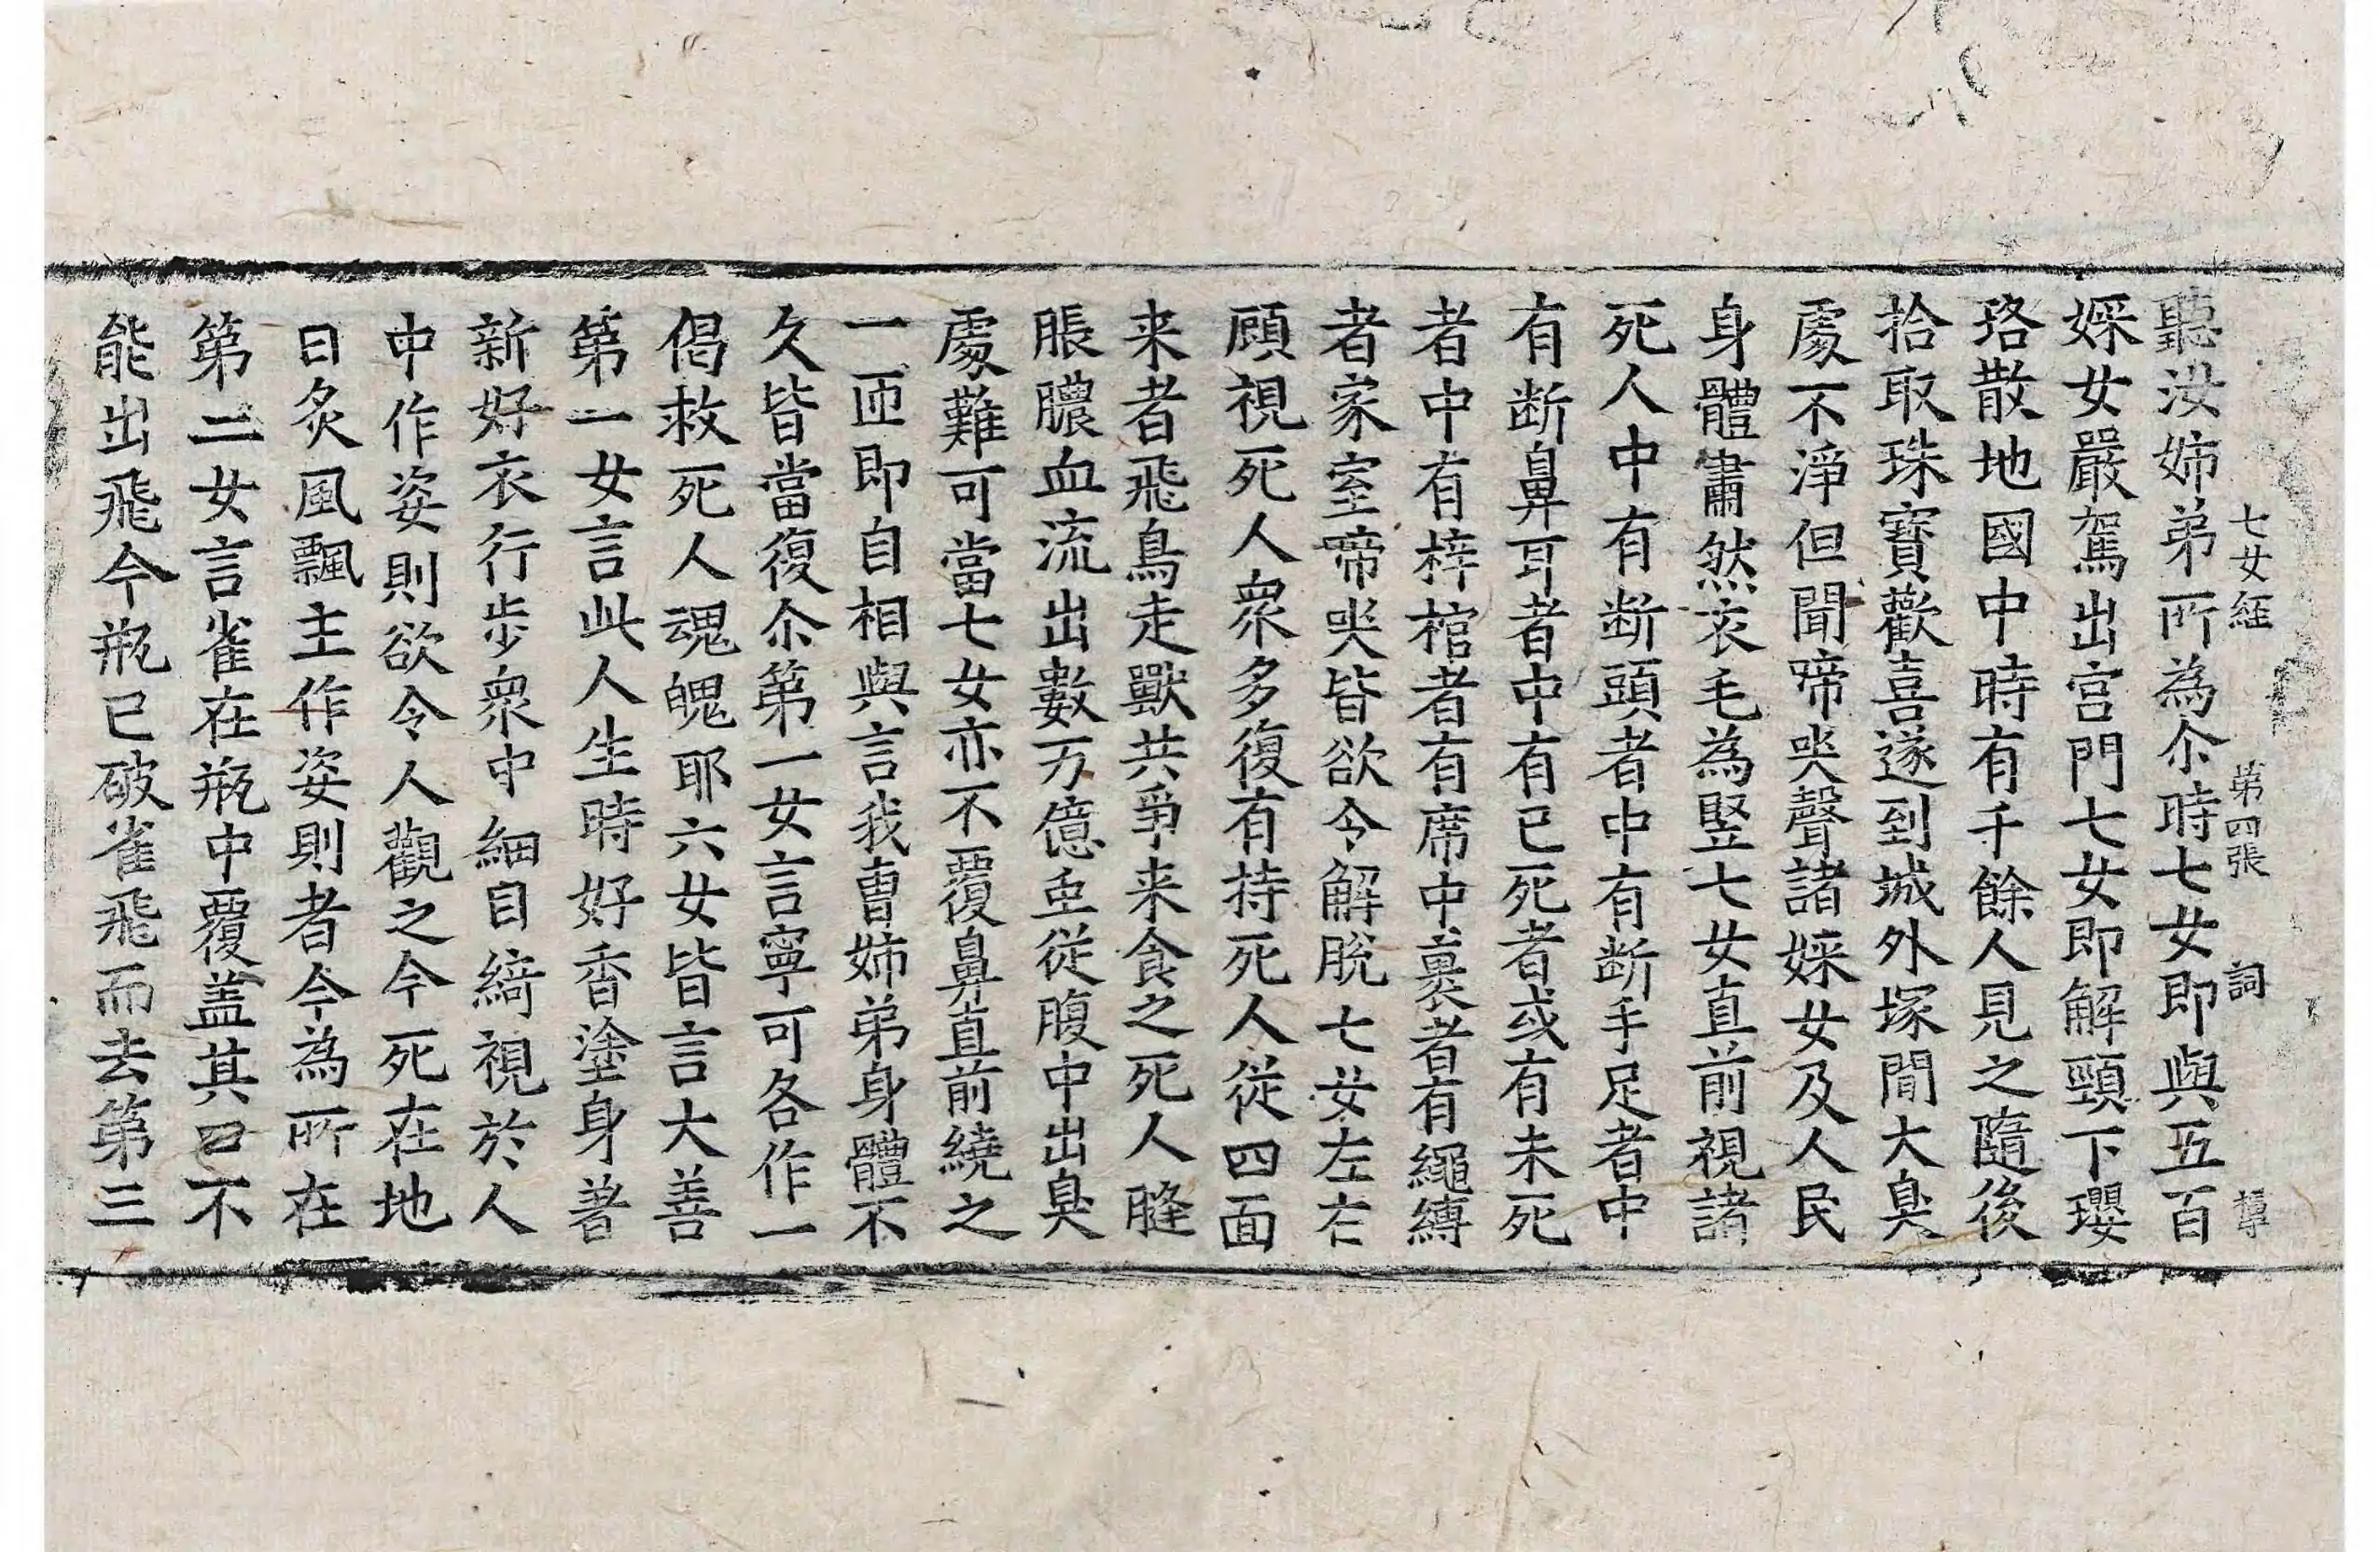 七女経 第四張 詞
聽汝姉弟所為尒時七女即與五百
婇女嚴駕出宫門七女即解頸下瓔
珞散地國中時有千餘人見之隨後
拾取珠寶歡喜遂到城外塚間大臭
處不淨但聞啼哭聲諸婇女及人民
身體肅然衣毛為竪七女直前視諸
死人中有断頭者中有断手足者中
有断鼻耳者中有已死者或有未死
者中有梓棺者有席中裹者有繩縛
者家室啼哭皆欲令解脫七女左右
顧視死人衆多復有持死人從四面
来者飛鳥走獸共爭来食之死人膖
脹膿血流出數万億䖝從腹中出臭
處難可當七女亦不覆鼻直前繞之
一匝即自相與言我曹姉弟身體不
久皆當復尒第一女言寧可各作一
偈救死人魂魄耶六女皆言大善
第一女言此人生時好香塗身著
新好衣行步衆中細目綺視於人
中作姿則欲令人觀之今死在地
日炙風飄主作姿則者今為所在
第二女言雀在瓶中覆盖其口不
能出飛今瓶已破雀飛而去第三